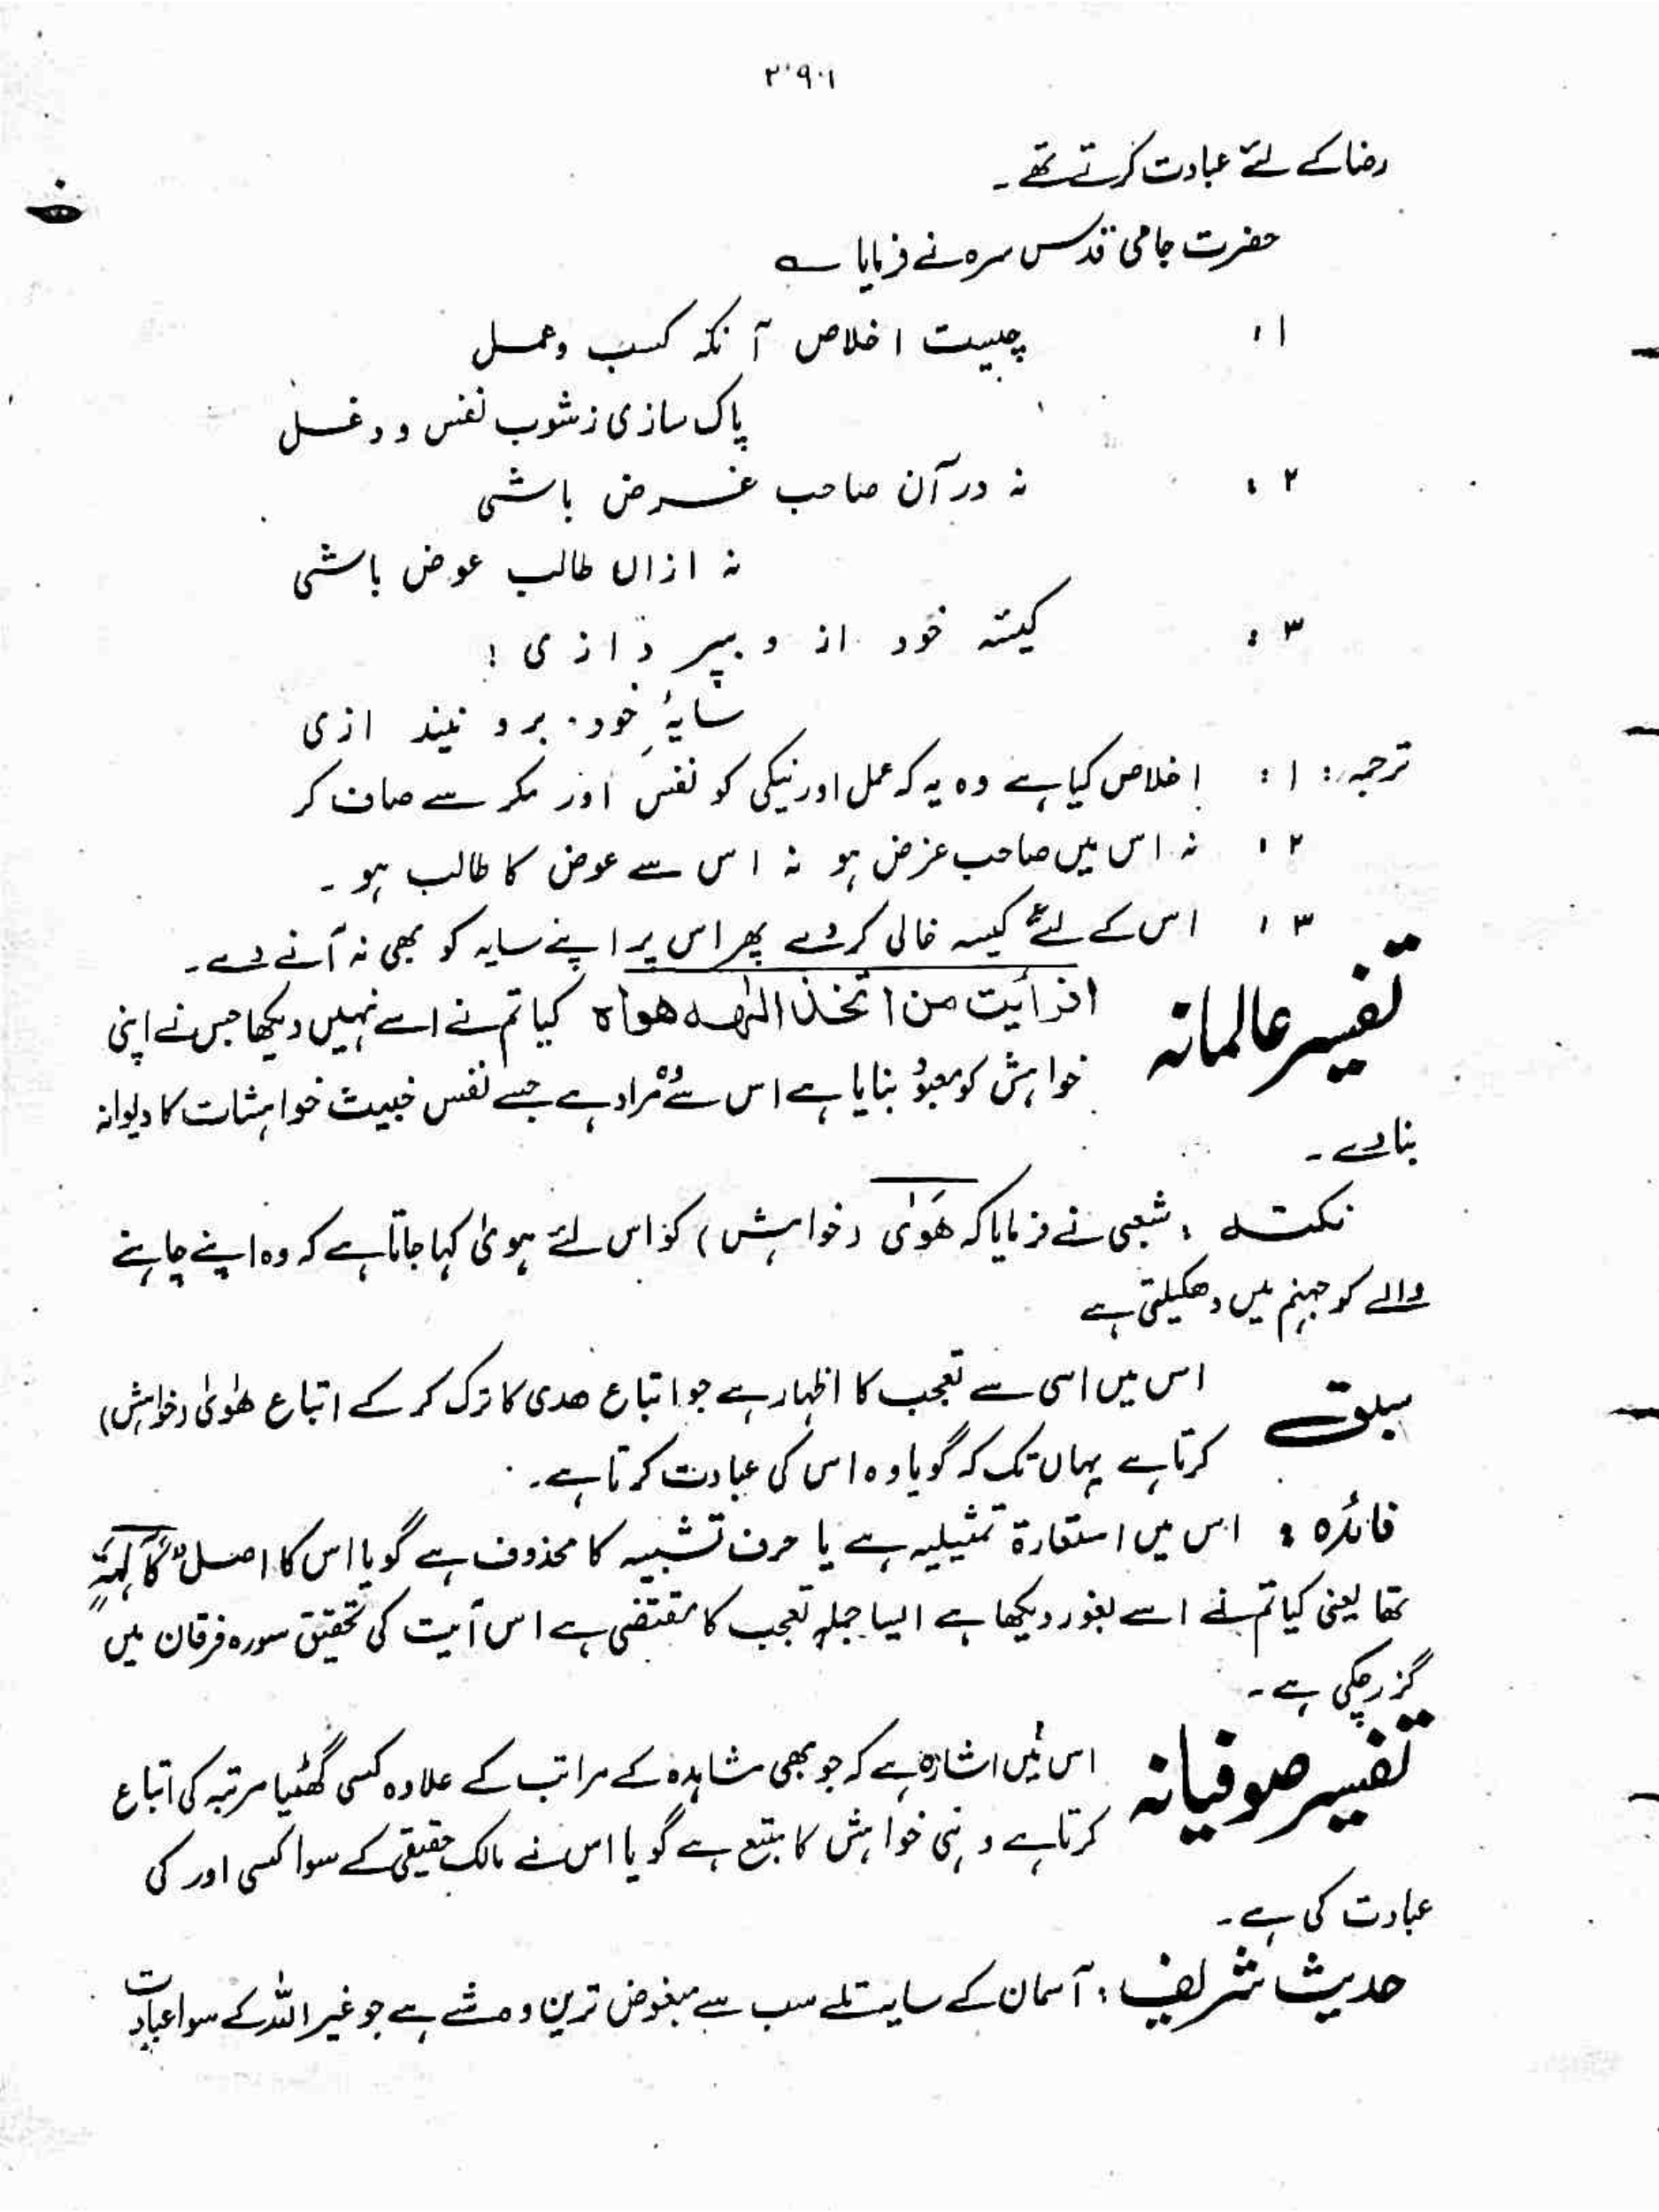 ۳۹۰۱
رضا کے لئے عبادت کرتے تھے۔
حضرت جامی قدس سرہ نے فرمایا ؎
۱: چیست اخلاص آنکہ کسب وعمل
پاک سازی ز شوب نفس و دغل
۲: نہ در آن صاحب غرض باشی
نہ ازاں طالب عوض باشی
۳: کیسۂ خود از و بپر دازی!
سایۂ خود برو نیند ازی
ترجمہ: ۱: اخلاص کیا ہے وہ یہ کہ عمل اور نیکی کو نفس اور مکر سے صاف کر
۲: نہ اس میں صاحب غرض ہو نہ اس سے عوض کا طالب ہو۔
۳: اس کے لئے کیسہ خالی کر دے پھر اس پر اپنے سایہ کو بھی نہ آنے دے۔
تفسیر عالمانہ افرأیت من اتخذ الٰھہ ھواہ کیا تم نے اسے نہیں دیکھا جس نے اپنی
خواہش کو معبود بنایا ہے اس سے وہ مراد ہے جسے نفس خبیث خواہشات کا دیوانہ
بنا دے۔
نکتہ: شعبی نے فرمایا کہ ھَوٰی (خواہش) کو اس لئے ہویٰ کہا جاتا ہے کہ وہ اپنے چاہنے
والے کو جہنم میں دھکیلتی ہے
سبق اس میں اسی سے تعجب کا اظہار ہے جو اتباع ھدی کا ترک کر کے اتباع ھویٰ (خواہش)
کرتا ہے یہاں تک کہ گویا وہ اس کی عبادت کرتا ہے۔
فائدہ: اس میں استعارۃ تمثیلیہ ہے یا حرف تشبیہ کا محذوف ہے گویا اس کا اصل "کَآلِهَةٍ"
تھا یعنی کیا تم نے اسے بغور دیکھا ہے ایسا جملہ تعجب کا مقتضی ہے اس آیت کی تحقیق سورہ فرقان میں
گزر چکی ہے۔
تفسیر صوفیانہ اس میں اشارہ ہے کہ جو بھی مشاہدہ کے مراتب کے علاوہ کسی گھٹیا مرتبہ کی اتباع
کرتا ہے وہی خواہش کا متبع ہے گویا اس نے مالک حقیقی کے سوا کسی اور کی
عبادت کی ہے۔
حدیث شریف: آسمان کے سایہ تلے سب سے مبغوض ترین وہ شے ہے جو غیر اللہ کے سوا عبادت